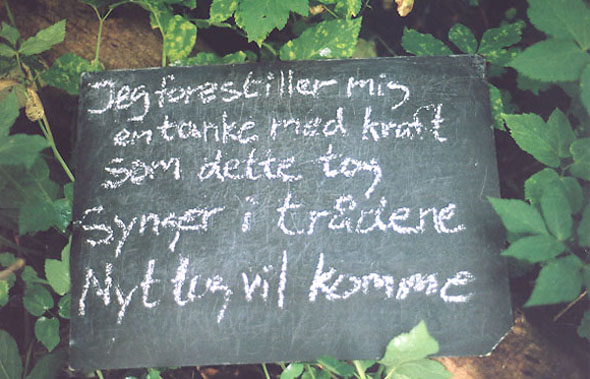 Jeg forestiller mig
en tanke med kraft
som dette tog
Synger i trådene
Nyt tog vil komme